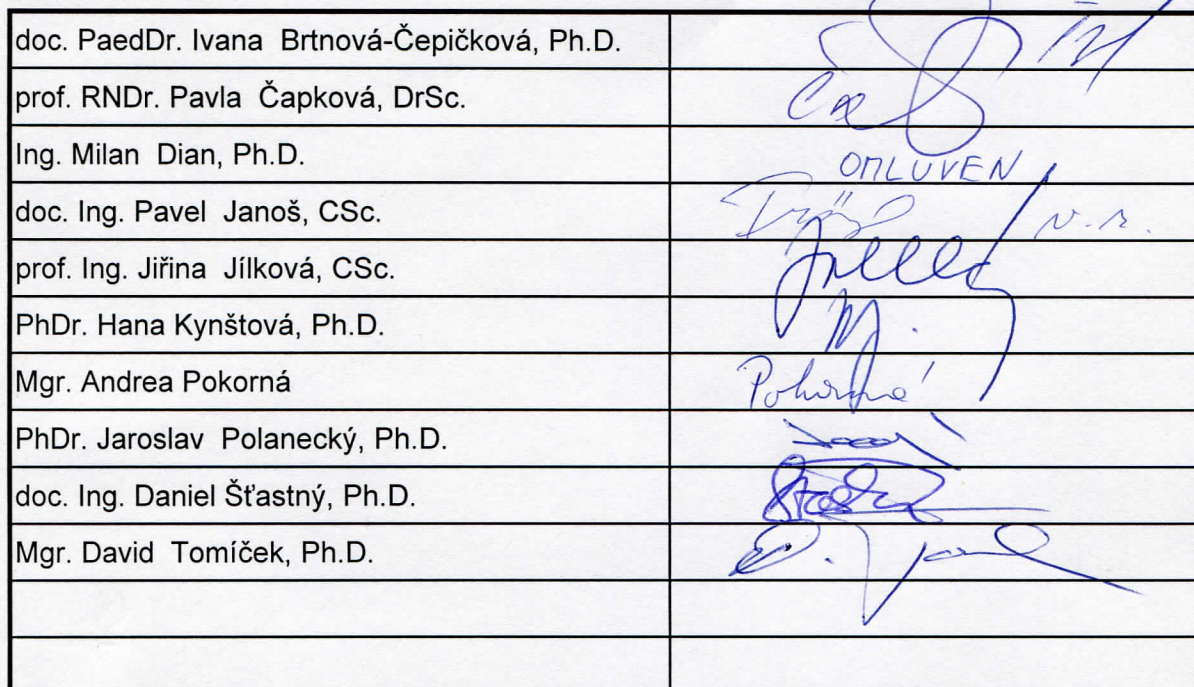 doc. PaedDr. Ivana Brtnová-Čepičková, Ph.D.
prof. RNDr. Pavla Čapková, DrSc.
Ing. Milan Dian, Ph.D. OMLUVEN
doc. Ing. Pavel Janoš, CSc.
prof. Ing. Jiřina Jílková, CSc.
PhDr. Hana Kynštová, Ph.D.
Mgr. Andrea Pokorná Pokorná
PhDr. Jaroslav Polanecký, Ph.D.
doc. Ing. Daniel Šťastný, Ph.D.
Mgr. David Tomíček, Ph.D.